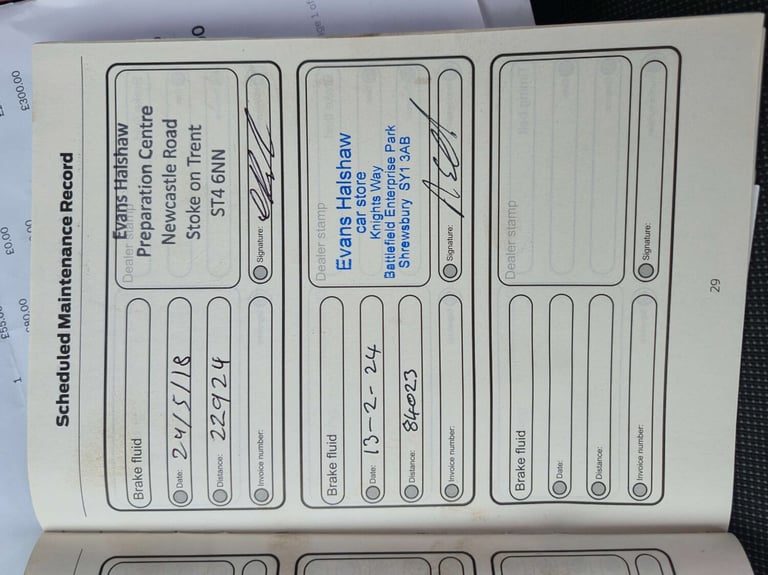 Scheduled Maintenance Record
Brake fluid
Date: 24/5/18
Distance: 22924
Invoice number:
Dealer stamp
Evans Halshaw
Preparation Centre
Newcastle Road
Stoke on Trent
ST4 6NN
Signature:
Brake fluid
Date: 13-2-24
Distance: 84023
Invoice number:
Dealer stamp
Evans Halshaw
car store
Knights Way
Battlefield Enterprise Park
Shrewsbury SY1 3AB
Signature:
Brake fluid
Date:
Distance:
Invoice number:
Dealer stamp
Signature:
29
£300.00
£0.00
1